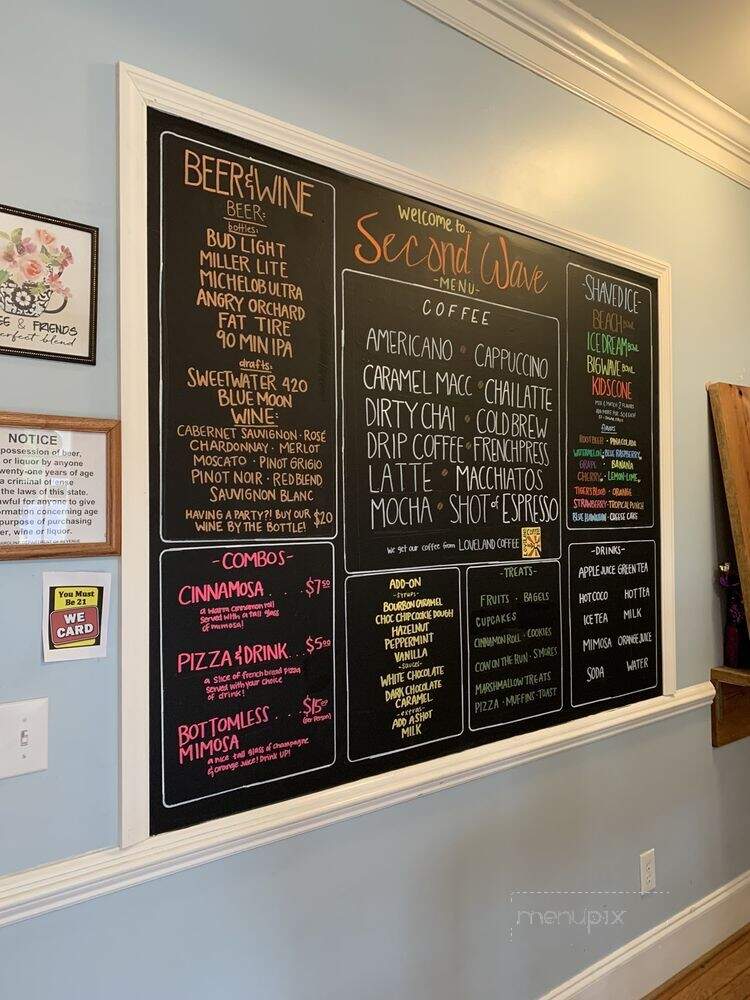 EE & FRIENDS
perfect blend
NOTICE
possession of beer,
or liquor by anyone
twenty-one years of age
a criminal offense
the laws of this state.
awful for anyone to give
ormation concerning age
purpose of purchasing
er, wine or liquor.
You Must
Be 21
WE
CARD
BEER & WINE
BEER:
bottles:
BUD LIGHT
MILLER LITE
MICHELOB ULTRA
ANGRY ORCHARD
FAT TIRE
90 MIN IPA
drafts:
SWEETWATER 420
BLUE MOON
WINE:
CABERNET SAUVIGNON · ROSÉ
CHARDONNAY · MERLOT
MOSCATO · PINOT GRIGIO
PINOT NOIR · RED BLEND
SAUVIGNON BLANC
HAVING A PARTY? BUY OUR
WINE BY THE BOTTLE! $20
-COMBOS-
CINNAMOSA . . . . $7.50
a warm cinnamon roll
served with a tall glass
of mimosa!
PIZZA & DRINK . . . $5.00
a slice of french bread pizza
served with your choice
of drink!
BOTTOMLESS . . . $15.00
MIMOSA (per person)
a nice tall glass of champagne
& orange juice! Drink UP!
welcome to...
Second Wave
-MENU-
COFFEE
AMERICANO · CAPPUCCINO
CARAMEL MACC · CHAI LATTE
DIRTY CHAI · COLD BREW
DRIP COFFEE · FRENCH PRESS
LATTE · MACCHIATOS
MOCHA · SHOT of ESPRESSO
We get our coffee from LOVELAND COFFEE
ADD-ON
-syrups-
BOURBON CARAMEL
CHOC CHIP COOKIE DOUGH
HAZELNUT
PEPPERMINT
VANILLA
-sauces-
WHITE CHOCOLATE
DARK CHOCOLATE
CARAMEL
-extras-
ADD A SHOT
MILK
-TREATS-
FRUITS · BAGELS
CUPCAKES
CINNAMON ROLL · COOKIES
COW ON THE RUN · S'MORES
MARSHMALLOW TREATS
PIZZA · MUFFINS · TOAST
-SHAVED ICE-
BEACH BOWL
ICE DREAM BOWL
BIG WAVE BOWL
KIDS CONE
MIX & MATCH 2 FLAVORS
flavors
ROOTBEER · PINA COLADA
WATERMELON · BLUE RASPBERRY
GRAPE · BANANA
CHERRY · LEMON-LIME
TIGERS BLOOD · ORANGE
STRAWBERRY · TROPICAL PUNCH
BLUE HAWAIIAN · CHEESE CAKE
-DRINKS-
APPLE JUICE GREEN TEA
HOT COCO HOT TEA
ICE TEA MILK
MIMOSA ORANGE JUICE
SODA WATER
menupix